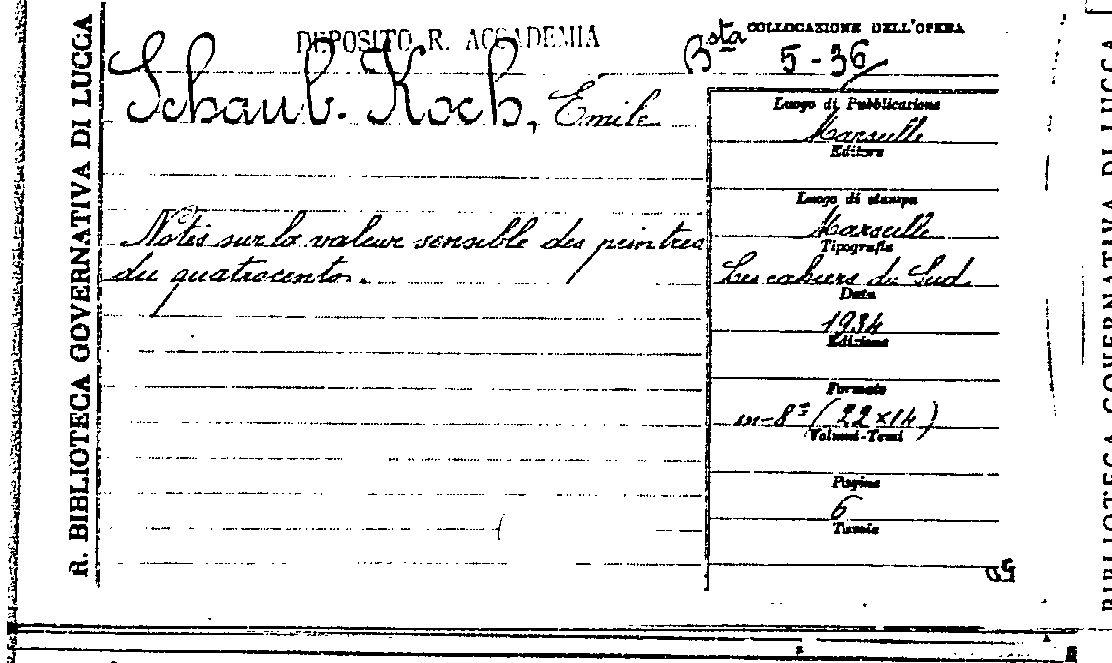 R. BIBLIOTECA GOVERNATIVA DI LUCCA
DEPOSITO R. ACCADEMIA
COLLOCAZIONE DELL'OPERA
Bsta 5-36
Schaub-Koch, Émile
Luogo di Pubblicazione
Marseille
Editore
Luogo di stampa
Marseille
Notes sur la valeur sensible des peintres
du quatrocento.
Tipografia
Les cahiers du Sud
Data
1934
Edizione
Formato
in-8º (22x14)
Volumi-Tomi
Pagine
6
Tavole